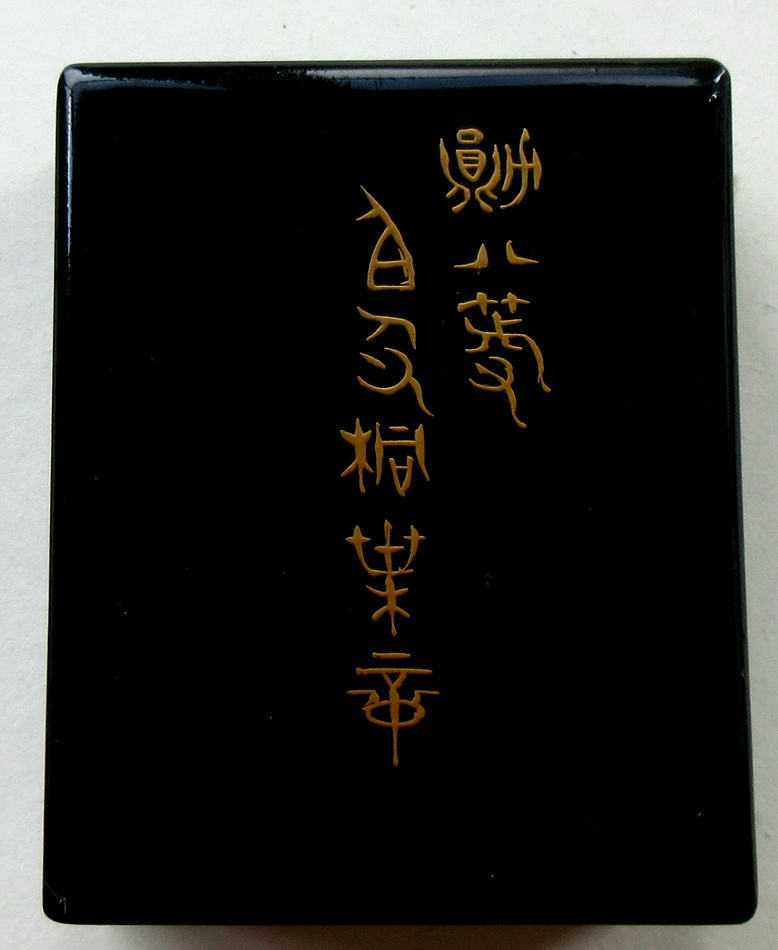 勲八等
白色桐葉章